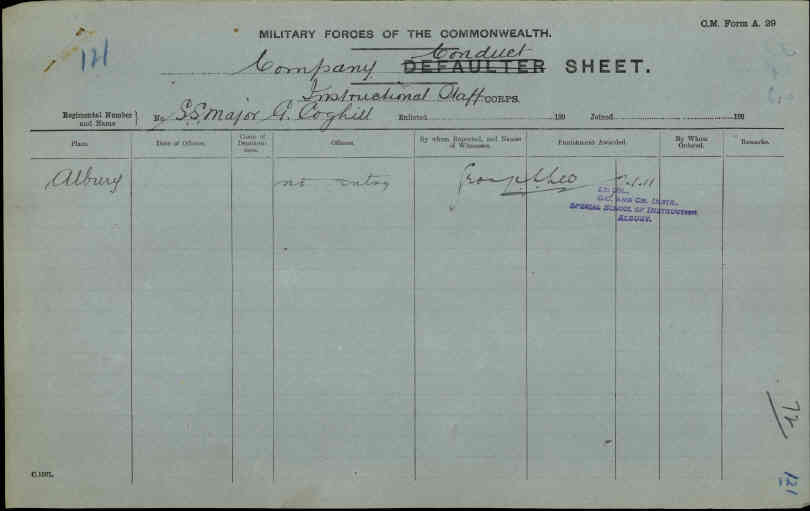 C.M. Form A. 29
121
MILITARY FORCES OF THE COMMONWEALTH.
Conduct
Company DEFAULTER SHEET.
Instructional Staff CORPS.
Regimental Number and Name } No S.S. Major G. Coghill Enlisted 190 Joined 190
Place. Date of Offence. Cases of Drunkenness. Offence. By whom Reported, and Names of Witnesses. Punishment Awarded. By Whom Ordered. Remarks.
Albury no entry
LT. COL.,
O.C. AND CH. INSTR.,
SPECIAL SCHOOL OF INSTRUCTION
ALBURY.
72
121